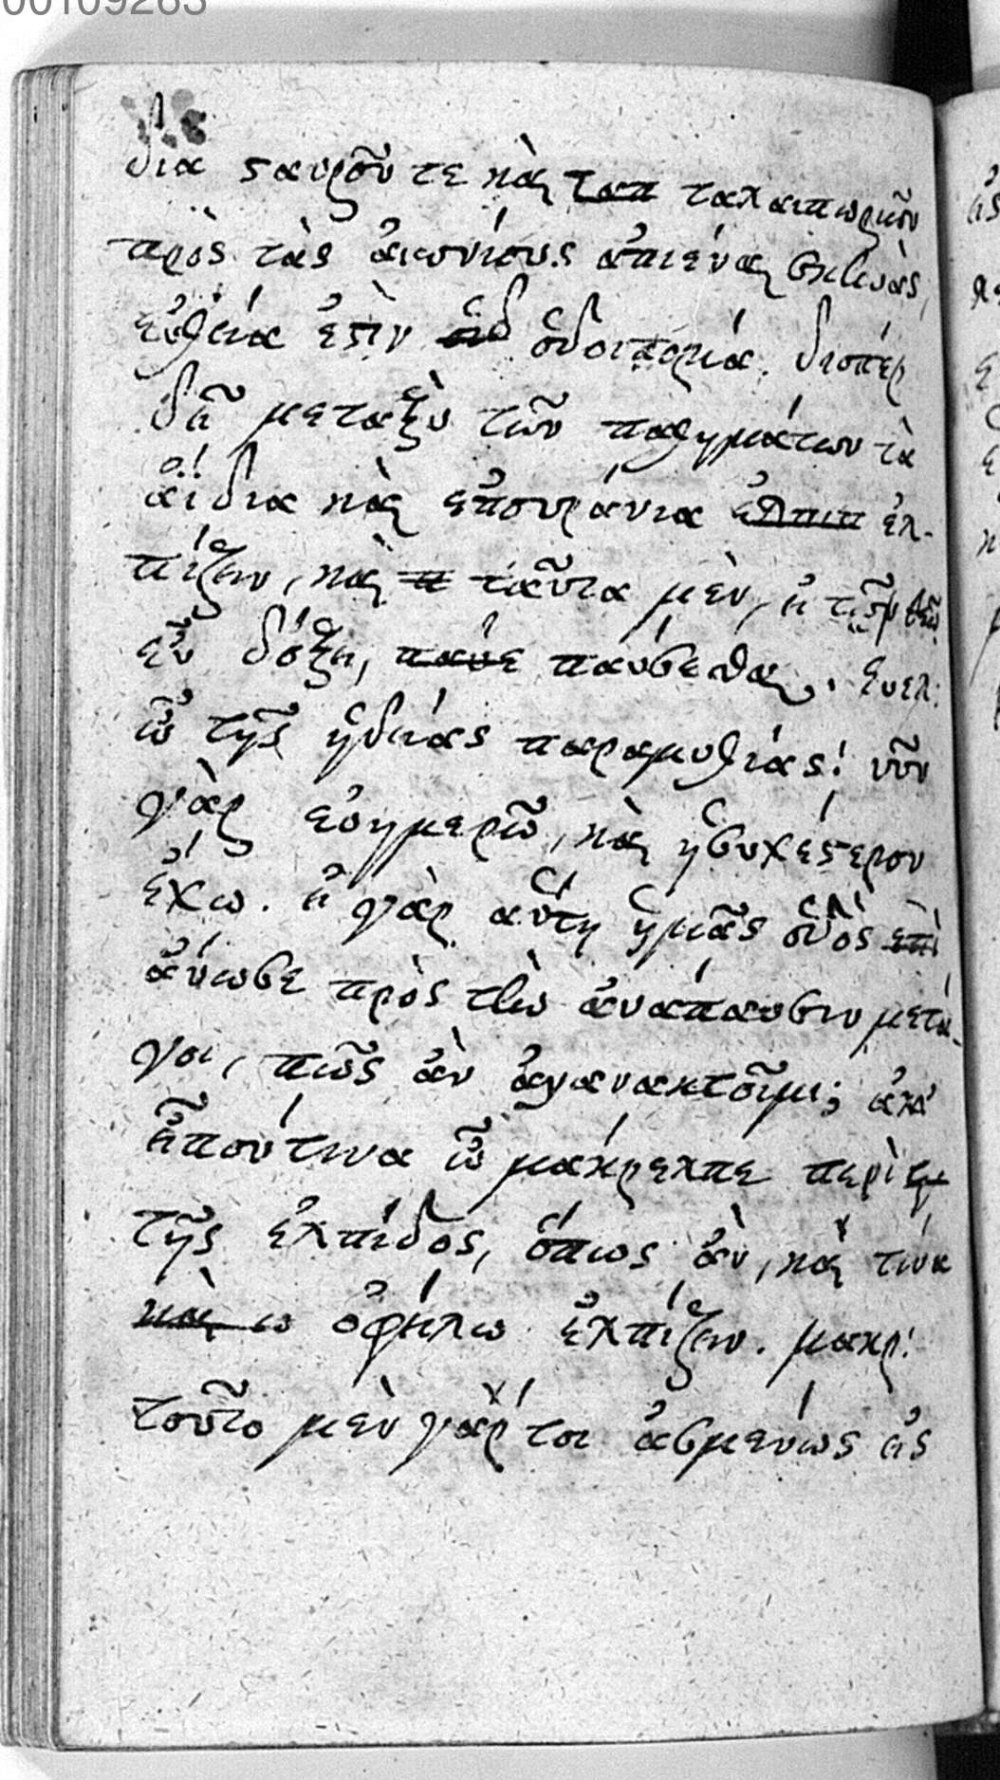 00109263
δια σταυροῦ τε καὶ ταπ ταλαιπωριῶν
πρὸς τὰς αἰωνίους ἀπιέναι σκηνὰς,
εὐθεία ἐστὶν ὁδοιπορία. διόπερ
δεῖ μεταξὺ τῶν παθημάτων τὰ
ἀΐδια καὶ ἐπουράνια ελπιπ ἐλ-
πίζειν, καὶ π ταῦτα μὲν, εἰ
εὖ δόξει, παύε παύσεσθαι. Ευελ:
ὢ τῆς ἡδείας παραμυθίας! νῦν
γὰρ εὐημερῶ, καὶ ἡσυχέστερον
ἔχω. εἰ γὰρ αὕτη ἡμᾶς ὁδὸς επὶ
ἄνωσε πρὸς τὴν ἀνάπαυσιν μετά-
γοι, πῶς ἂν ἀγανακτοῖμι; ἀλλ'
εἰπού τινα ὦ μάκρελπε περὶ
τῆς ἐλπίδος, ὅπως ἂν, καὶ τίνα
καὶ ω ὀφείλω ἐλπίζειν. μακρ:
τοῦτο μὲν γάρ τοι ἀσμένως εἰς